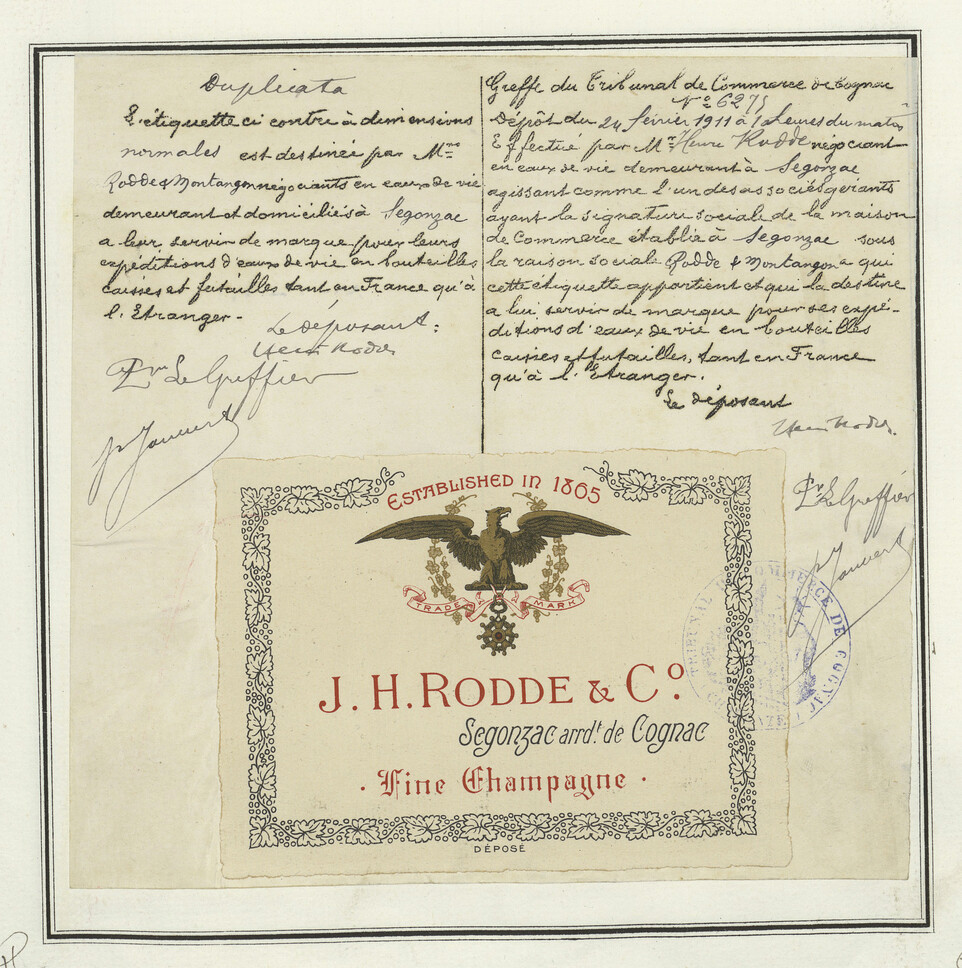 Duplicata
L'étiquette ci contre à dimensions
normales est destinée par Mrs
Rodde & Montangon négociants en eaux de vie
demeurant et domiciliés à Segonzac
a leur servir de marque pour leurs
expéditions d'eaux de vie en bouteilles
caisses et futailles tant en France qu'à
l'Etranger.-
Le déposant:
Henri Rodde
Pr Le Greffier
Greffe du Tribunal de Commerce de Cognac
N° 6275
Dépôt du 24 février 1911 à heures du matin
Effectué par Mr Henri Rodde négociant
en eaux de vie demeurant à Segonzac
agissant comme l'un des associés gérants
ayant la signature sociale de la maison
de Commerce établie à Segonzac sous
la raison sociale Rodde & Montangon a qui
cette étiquette appartient et qui la destine
a lui servir de marque pour ses expé-
ditions d'eaux de vie en bouteilles
caisses et futailles, tant en France
qu'à l'Etranger.
Le déposant
Henri Rodde.
Pr Le Greffier
ESTABLISHED IN 1865
TRADE MARK
J. H. RODDE & Co.
Segonzac arrdt. de Cognac
· Fine Champagne ·
DÉPOSÉ
TRIBUNAL DE COMMERCE DE COGNAC